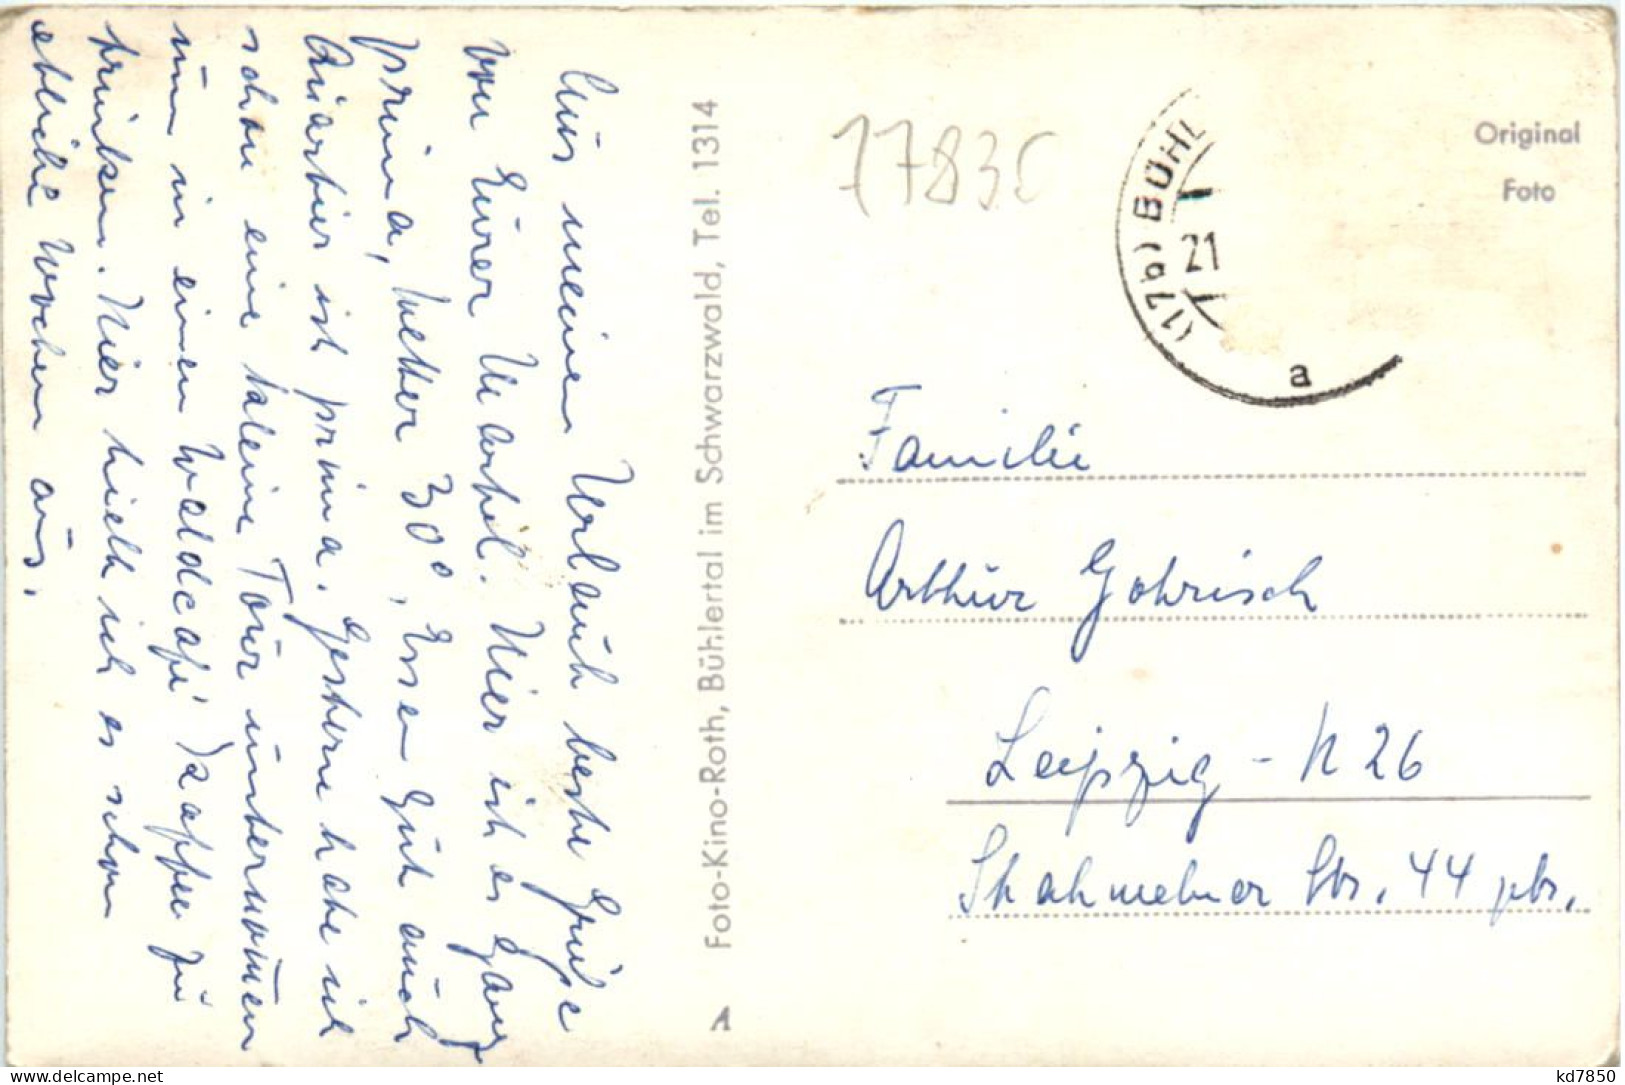 Aus meinen Urlaub beste Grüße
von Eurer Martel. Hier ist es ganz
prima, Wetter 30°, Essen gut auch
Quartier ist prima. Gestern habe ich
schon eine kleine Tour unternom̄en
um in einen Waldcafé Kaffee zu
trinken. Hier hielt ich es schon
etliche Wochen aus.
A Foto-Kino-Roth, Bühlertal im Schwarzwald, Tel. 1314
17b) BÜHL
21
a
Original
Foto
Familie
Arthur Gohrisch
Leipzig - N 26
Str. 44 ptr.
kd7850